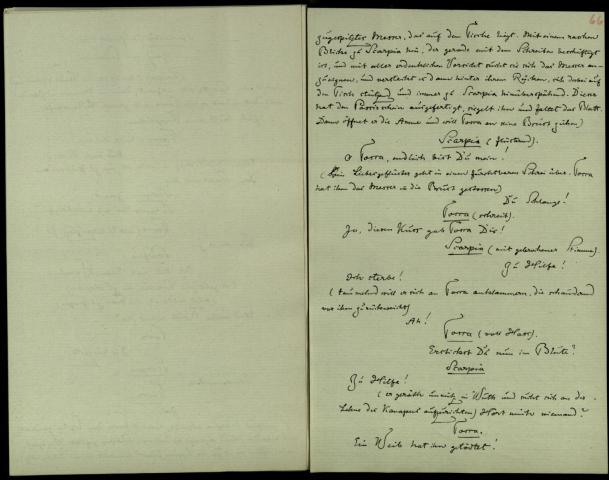 66
zugespitztes Messer, das auf dem Tische liegt. Mit einem raschen
Blicke zu Scarpia hin, der gerade mit dem Schreiben beschäftigt
ist, und mit aller erdenklichen Vorsicht sucht sie sich das Messer an-
zueignen, und versteckt es dann hinter ihrem Rücken, sich dabei auf
den Tisch stützend und immer zu Scarpia hinüberspähend. Dieser
hat den Passirschein ausgefertigt, siegelt ihn und faltet das Blatt.
Dann öffnet er die Arme und will Tosca an seine Brust ziehen)
Scarpia (flüsternd).
O Tosca, endlich bist Du mein!
(Sein Liebesgeflüster geht in einen furchtbaren Schrei über. Tosca
hat ihm das Messer in die Brust gestossen)
Du Schlange!
Tosca (schreit).
Ja, diesen Kuss gab Tosca Dir!
Scarpia (mit gebrochener Stimme)
Zu Hilfe!
Ich sterbe!
(taumelnd will er sich an Tosca anklammern, die schaudernd
vor ihm zurückweicht)
Ah!
Tosca (voll Hass).
Erstickst Du nun im Blute?
Scarpia
Zu Hilfe!
(er geräth in Wuth und sucht sich an der
Lehne des Kanapees aufzurichten) Hört mich niemand?
Tosca.
Ein Weib hat ihn getödtet!